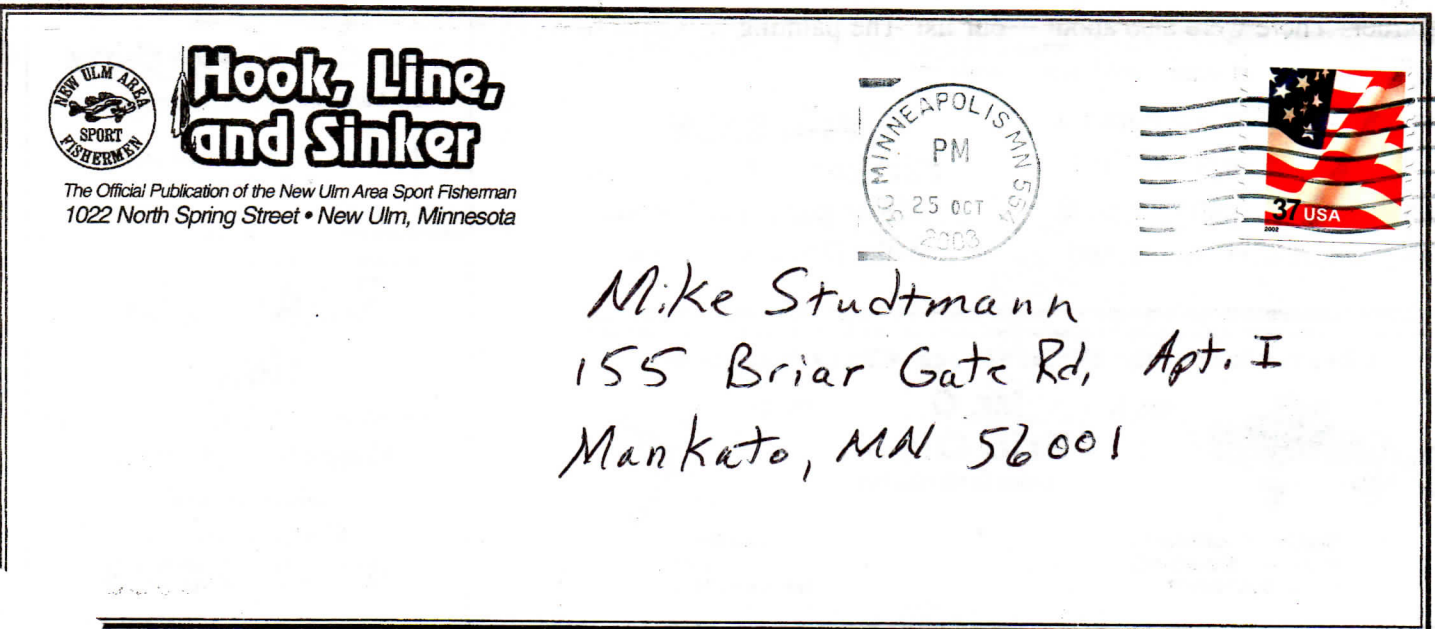 NEW ULM AREA
SPORT
FISHERMEN
Hook, Line,
and Sinker
The Official Publication of the New Ulm Area Sport Fisherman
1022 North Spring Street • New Ulm, Minnesota
MINNEAPOLIS MN 554
PM
25 OCT
2003
37 USA
2002
Mike Studtmann
155 Briar Gate Rd, Apt. I
Mankato, MN 56001